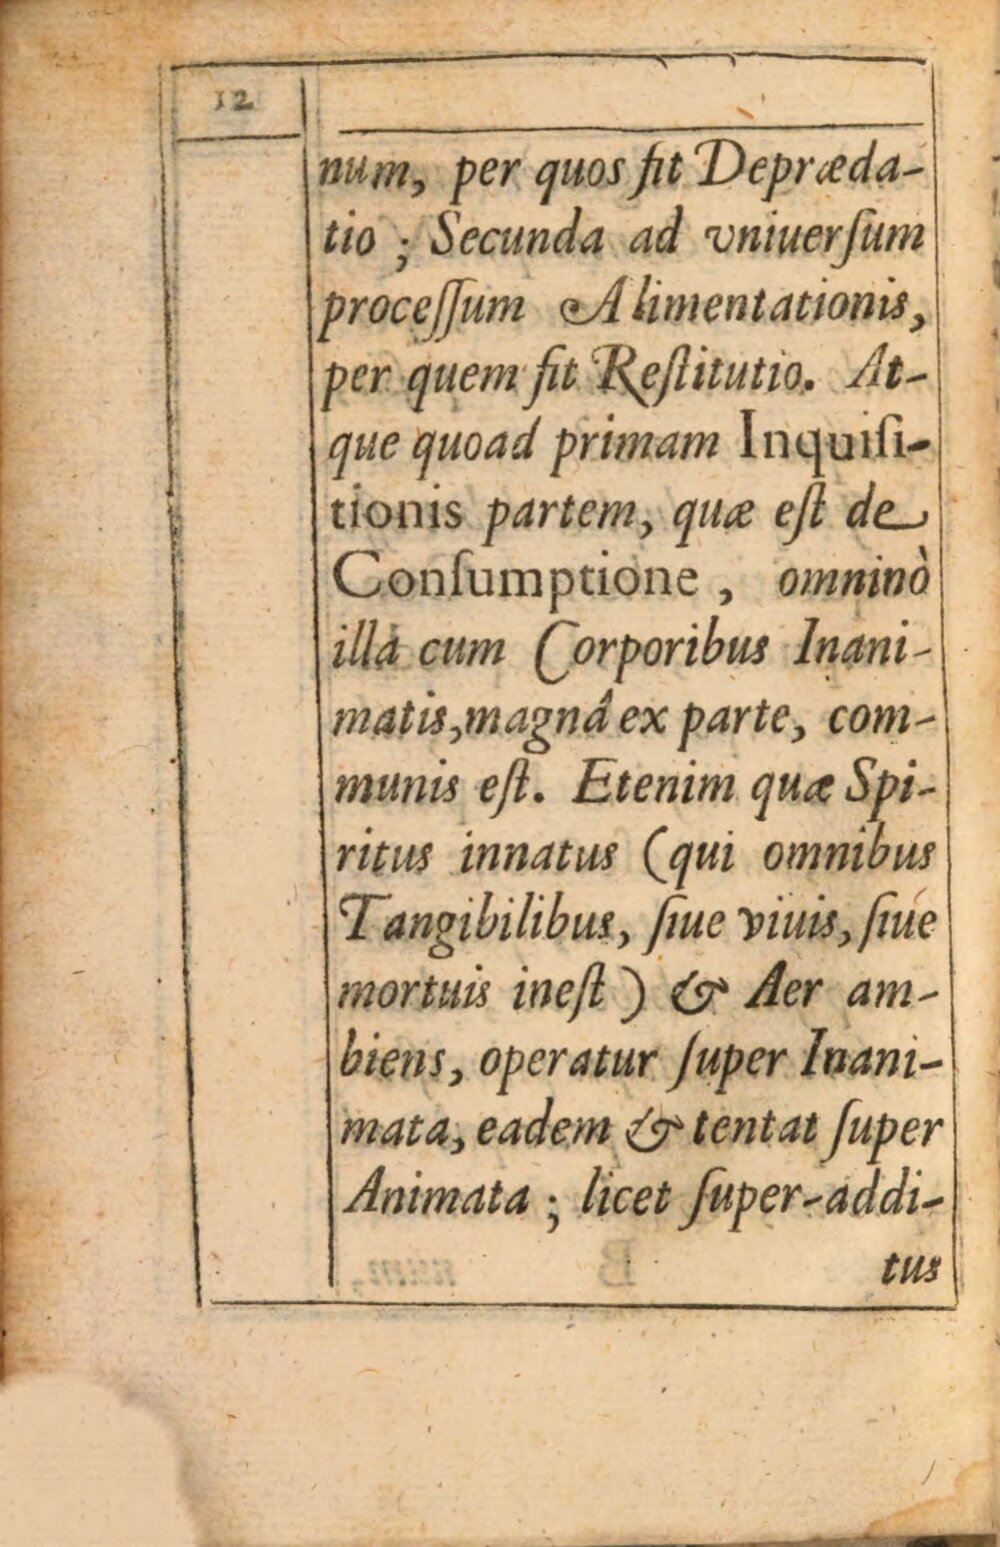 12
num, per quos fit Depræda-
tio ; Secunda ad vniuerſum
proceſſum Alimentationis,
per quem fit Reſtitutio. At-
que quoad primam Inquiſi-
tionis partem, quæ eſt de
Conſumptione , omninò
illa cum Corporibus Inani-
matis,magnâ ex parte, com-
munis eſt. Etenim quæ Spi-
ritus innatus (qui omnibus
Tangibilibus, ſiue viuis, ſiue
mortuis ineſt) & Aer am-
biens, operatur ſuper Inani-
mata, eadem & tentat ſuper
Animata ; licet ſuper-addi-
tus